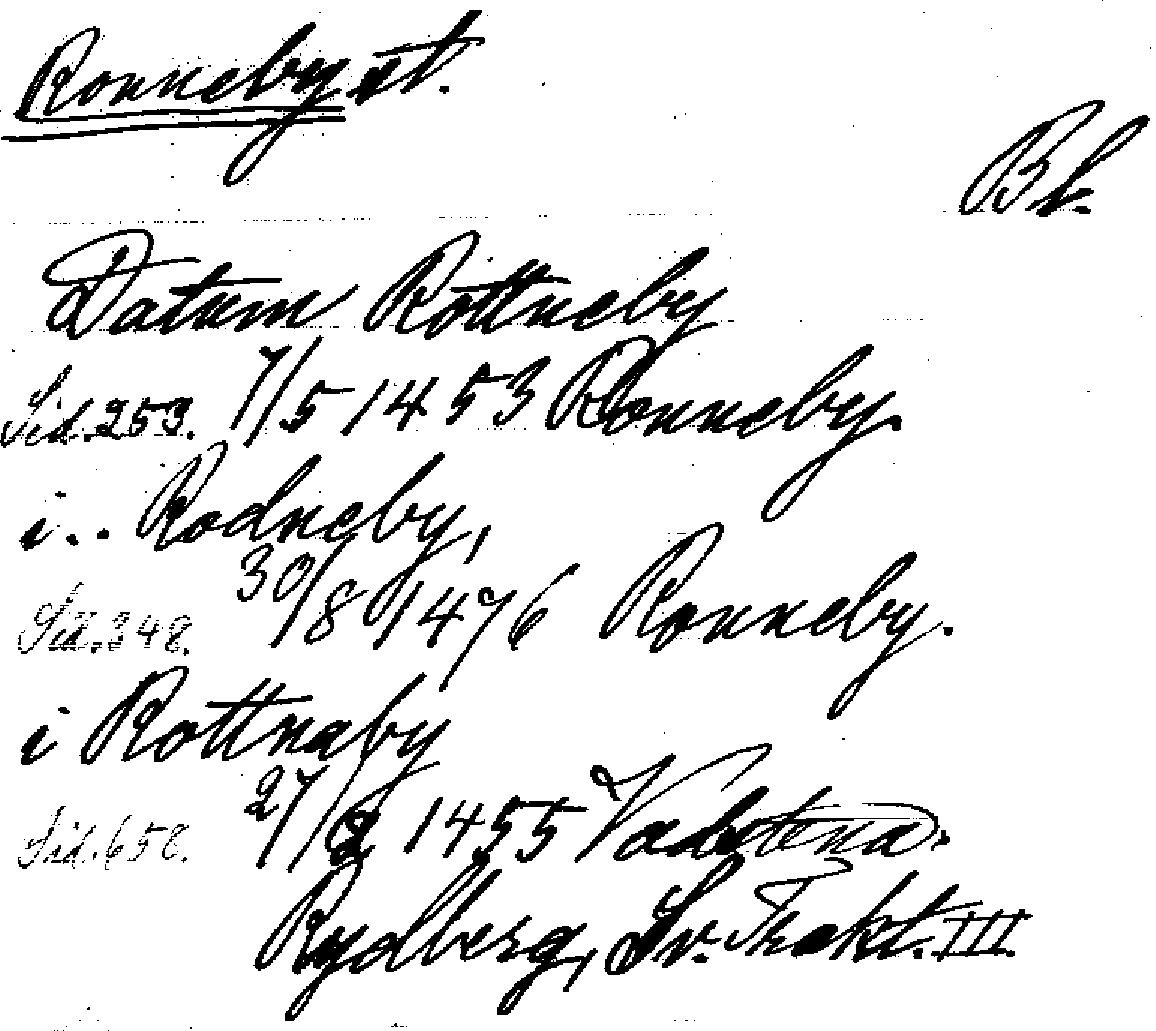 Ronneby st.
Bl.
Datum Rottneby
Sid. 253. 7/5 1453 Ronneby.
i.. Rodneby,
Sid. 348. 30/8 1476 Ronneby.
i Rottnaby
Sid. 658. 27/2 1455 Vadstena.
Rydberg, Sv. Trakt. III